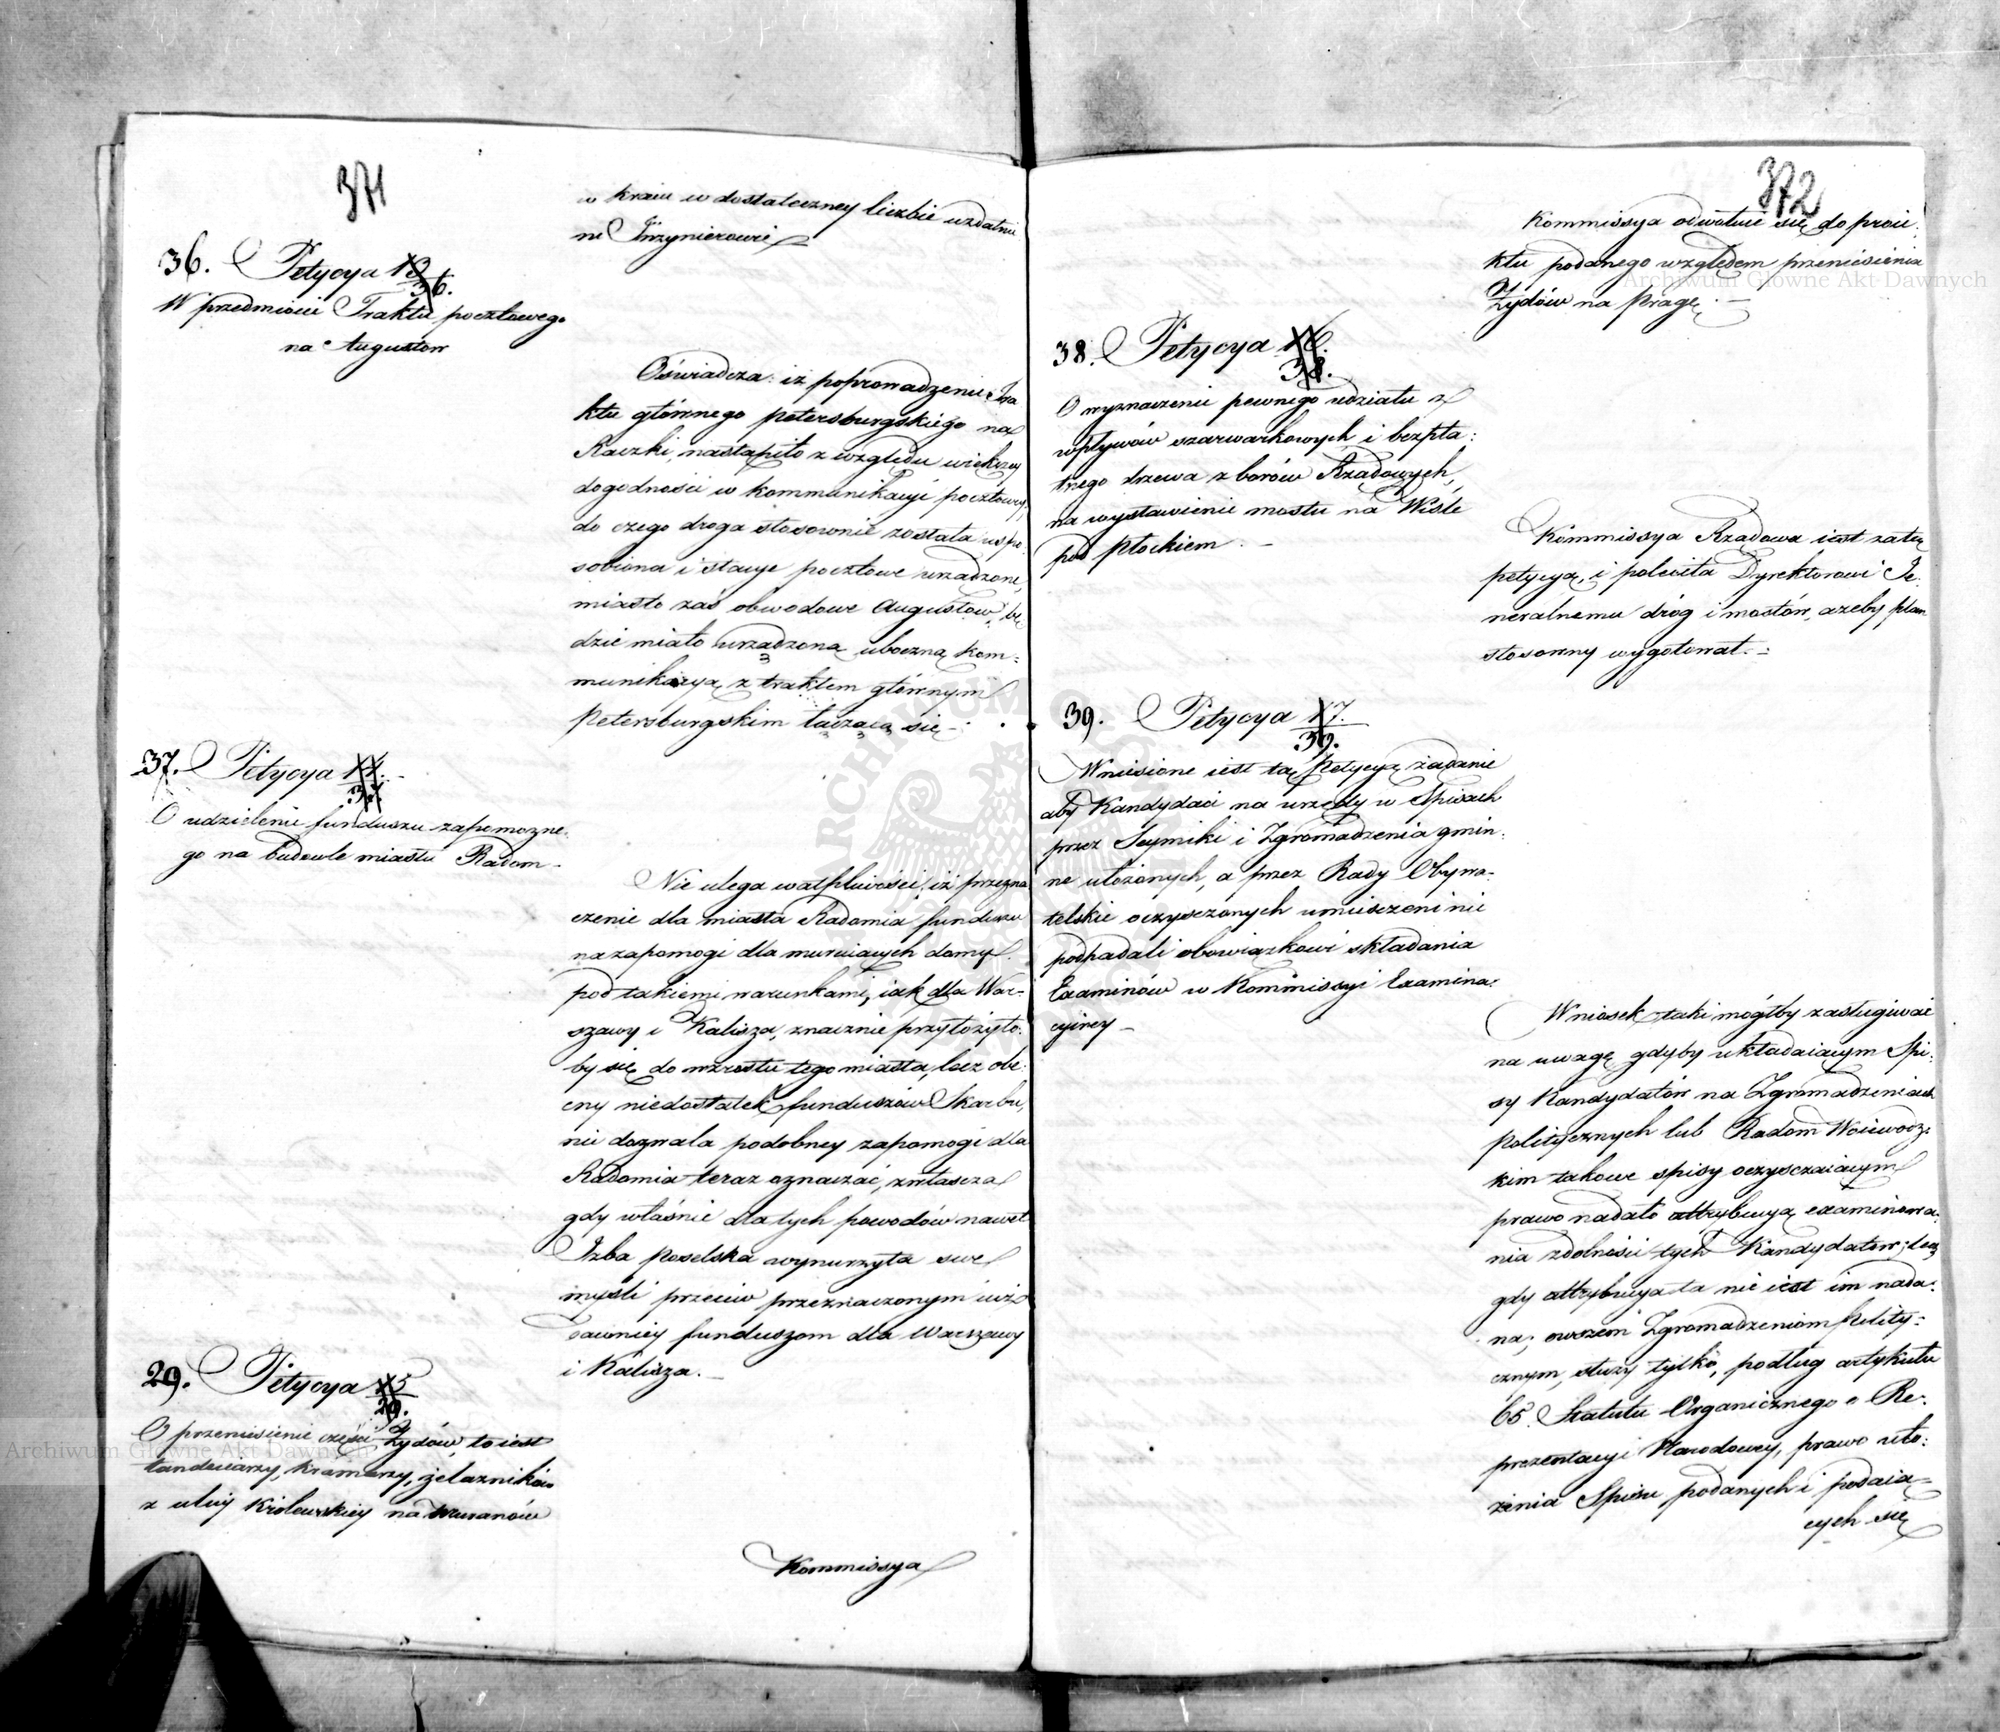 371
w kraiu w dostateczney liczbie uzdatnie
ni Inżynierowie
36. Petycya 13
36.
W przedmiocie Traktu pocztowego
na Augustow
Oświadcza: iż poprowadzenie Tra
ktu głównego petersburgskiego na
Raczki, nastąpiło z względu większey
dogodności w kommunikacyi pocztowey,
do czego droga stosownie została uspo
sobiona i stacye pocztowe urządzone,
miasto zaś obwodowe Augustow, bę
dzie miało urządzoną uboczną kom:
munikacyą z traktem głównym
Petersburgskim łączącą się
37. Petycya 14.
37
O udzielenie funduszu zapomożne:
go na budowle miastu Radom
Nie ulega wątpliwości, iż przezna
czenie dla miasta Radomia funduszu
na zapomogi dla muruiących domy
pod takiemi warunkami, iak dla War:
szawy i Kalisza, znacznie przyłożyło:
by się do wzrostu tego miasta, lecz obe:
cny niedostatek funduszów Skarbu,
nie dozwala podobney zapomogi dla
Radomia teraz oznaczać, zwłaszcza
gdy właśnie dla tych powodów nawet
Izba Poselska wynurzyła swe
myśli przeciw przeznaczonym iuż
dawniey funduszom dla Warszawy
i Kalisza.
29. Petycya 15
29.
O przeniesienie części Żydów, to iest
tandeciarzy, kramarzy, żelazników
z ulicy Królewskiey na Muranów
Kommissya
372
Kommissya odwołuie się do proie
ktu podanego względem przeniesienia
Żydów na Pragę.
38. Petycya 16.
38.
O wyznaczenie pewnego udziału z
wpływów szarwarkowych i bezpła:
tnego drzewa z borów Rządowych,
na wystawienie mostu na Wiśle
pod Płockiem.
Kommissya Rządowa iest za tą
petycyą, i poleciła Dyrektorowi Je
neralnemu dróg i mostów, ażeby plan
stosowny wygotował.
39. Petycya 17.
39.
Wniesione iest tą Petycyą żądanie
aby Kandydaci na urzędy w Spisach
przez Seymiki i Zgromadzenia gmin:
ne ułożonych, a przez Rady Obywa:
telskie oczysczonych umiesczeni nie
podpadali obowiązkowi składania
Examinów w Kommissyi Examina:
cyiney
Wniosek taki mógłby zasługiwać
na uwagę gdyby układaiącym Spi:
sy Kandydatów na Zgromadzeniach
politycznych lub Radom Woiewódz:
kim takowe spisy oczysczaiącym
prawo nadało attrybucyą examinowa:
nia zdolności tych Kandydatów; lecz
gdy attrybucya ta nie iest im nada:
na; owszem Zgromadzeniom Polity:
cznym, służy tylko, podług artykułu
65. Statutu Organicznego o Re:
prezentacyi Narodowey, prawo uło:
żenia Spisu podanych i podaią
cych się
Archiwum Główne Akt Dawnych
Archiwum Główne Akt Dawnych